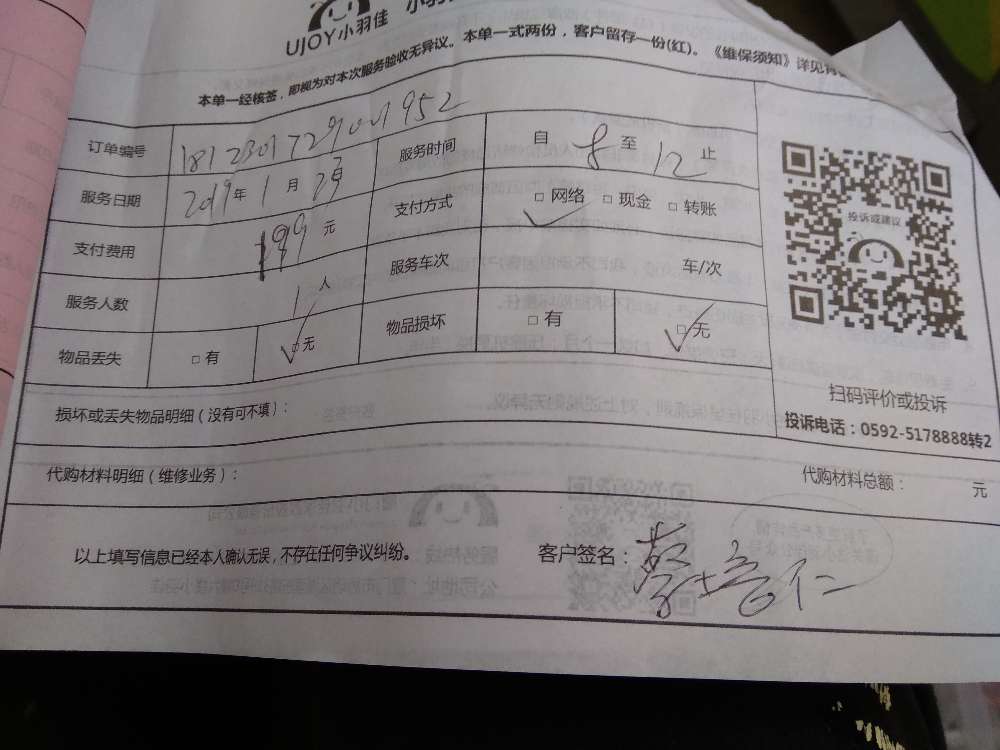 UJOY小羽佳
本单一经核签，即视为对本次服务验收无异议。本单一式两份，客户留存一份(红)。《维保须知》详见背
订单编号
服务时间 自 8 至 12 止
服务日期 2019年 1 月 日
支付方式 □ 网络 □ 现金 □ 转账
支付费用 199 元
服务车次 车/次
服务人数 1 人
物品损坏 □ 有 □ 无
物品丢失 □ 有 □ 无
投诉或建议
扫码评价或投诉
投诉电话：0592-5178888转2
损坏或丢失物品明细（没有可不填）：
代购材料明细（维修业务）：
代购材料总额： 元
以上填写信息已经本人确认无误，不存在任何争议纠纷。
客户签名：蔡